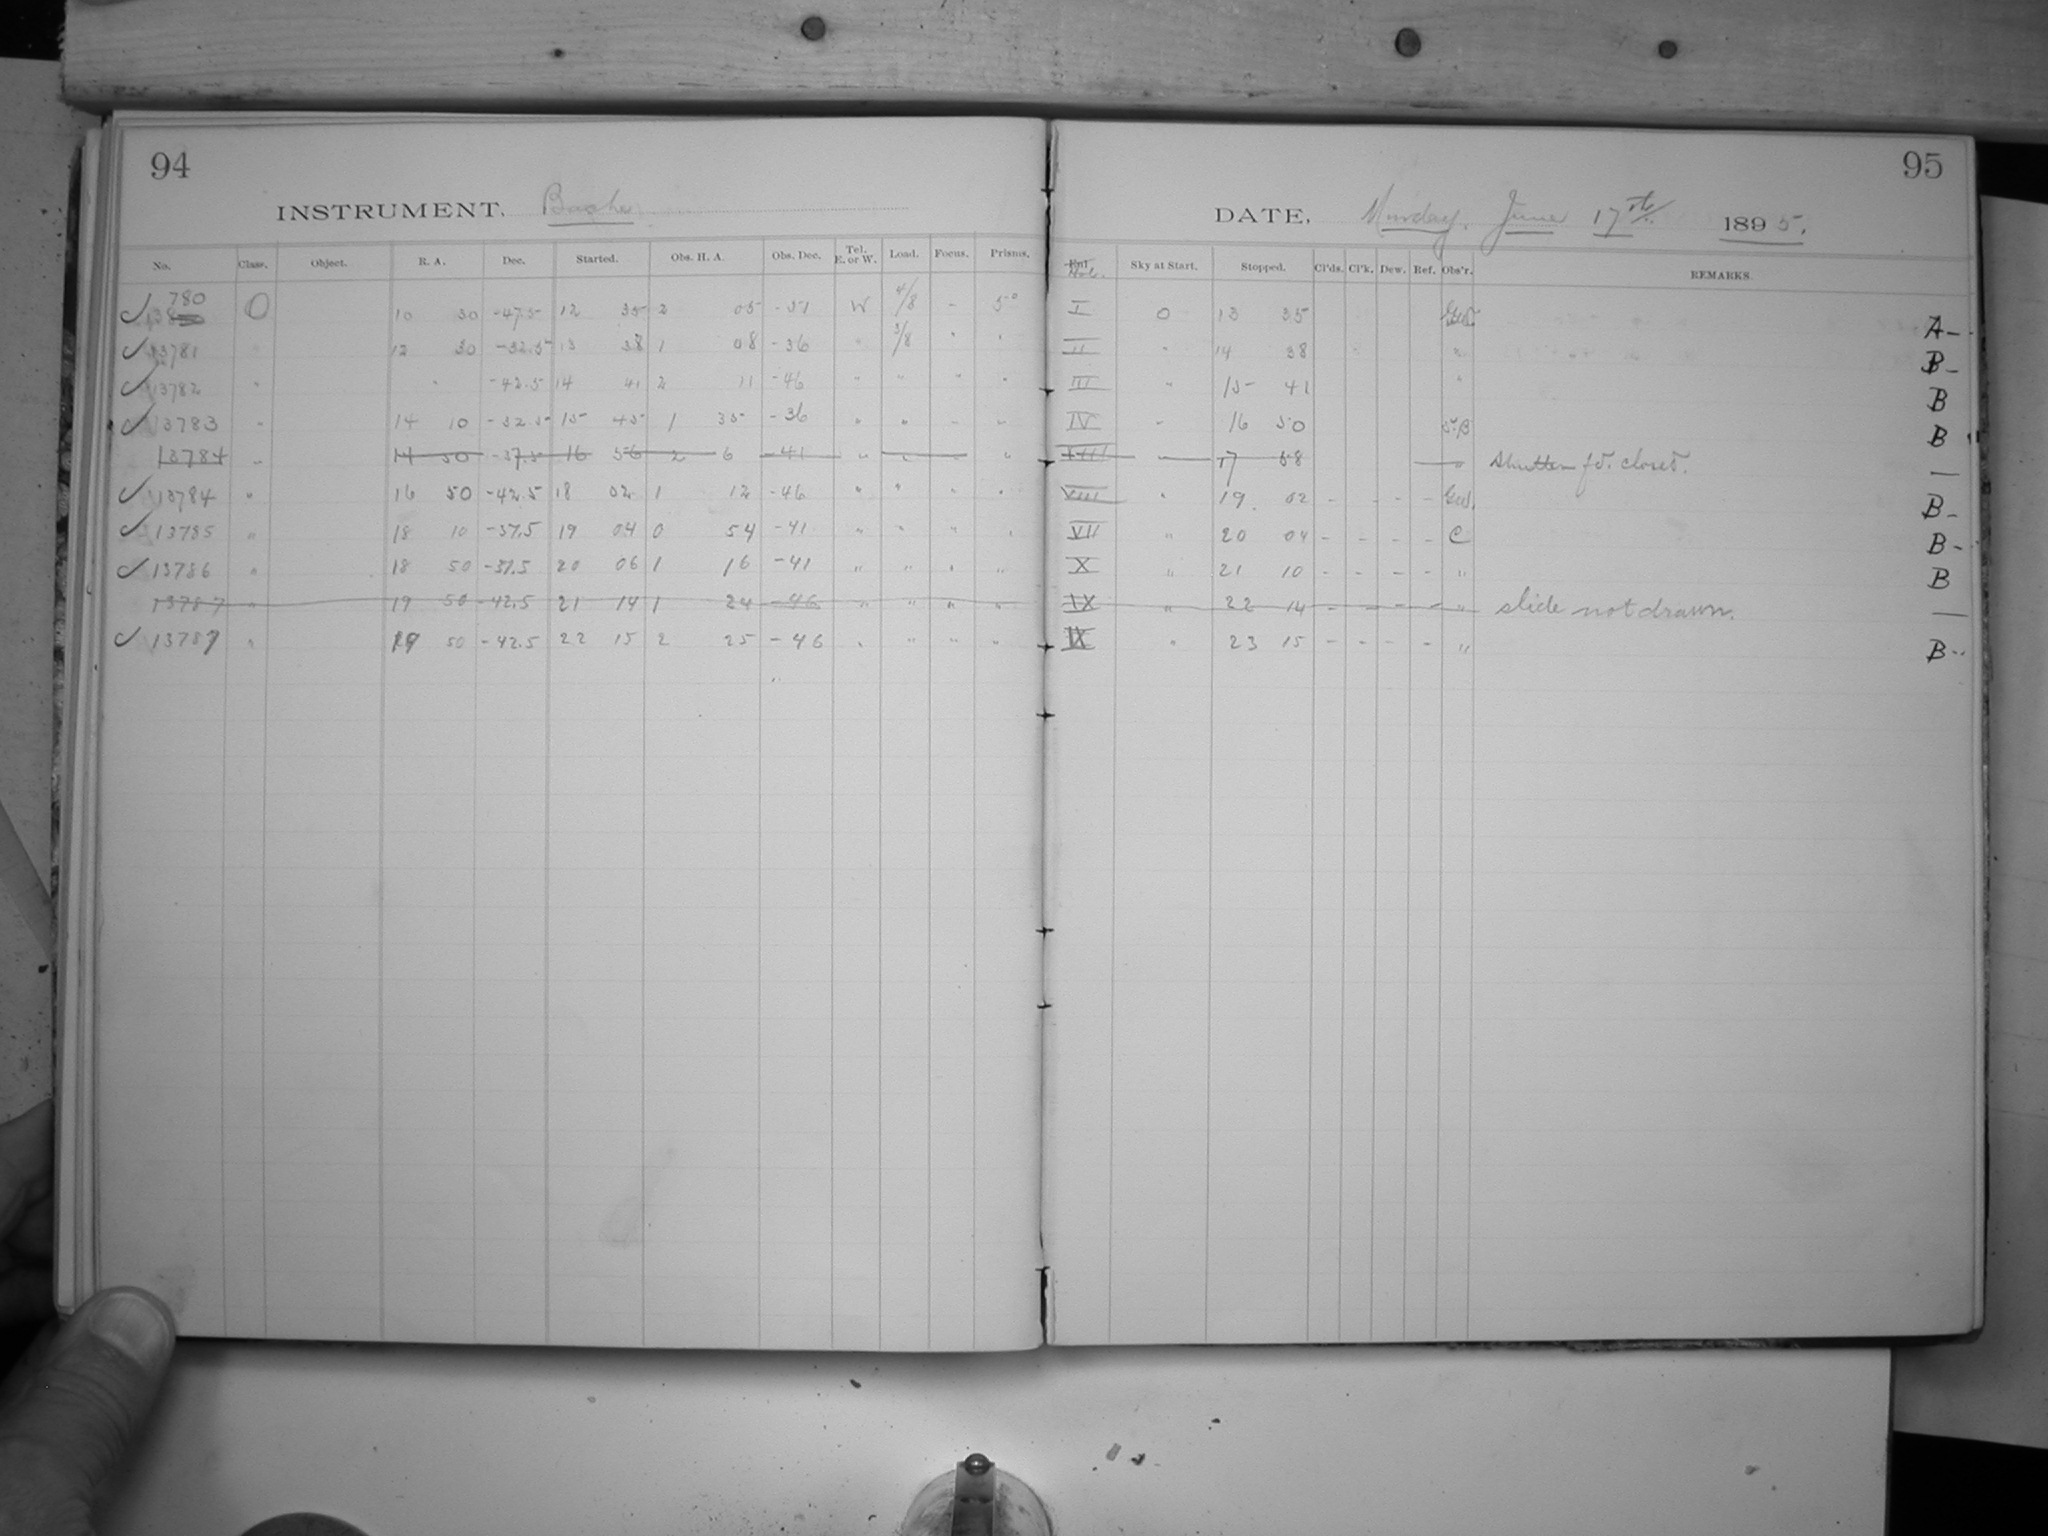 94
INSTRUMENT. Bache
No. Class. Object. R. A. Dec. Started. Obs. H. A. Obs. Dec. Tel. E. or W. Load. Focus. Prisms.
✓ 13780 O 10 30 -47.5 12 35 2 05 -51 W 4/8 - 5°
✓ 13781 " 12 30 -32.5 13 38 1 08 -36 " 3/8 " "
✓ 13782 " " -42.5 14 41 2 11 -46 " " " "
✓ 13783 " 14 10 -32.5 15 45 1 35 -36 " " " "
13784 " 14 50 -37.5 16 56 2 6 -41 " " "
✓ 13784 " 16 50 -42.5 18 02 1 12 -46 " " " "
✓ 13785 " 18 10 -37.5 19 04 0 54 -41 " " " "
✓ 13786 " 18 50 -37.5 20 06 1 16 -41 " " " "
13787 " 19 50 -42.5 21 14 1 24 -46 " " " "
✓ 13787 " 19 50 -42.5 22 15 2 25 -46 " " " "
95
DATE, Monday. June 17th 1895.
Hol. Sky at Start. Stopped. Cl'ds. Cl'k. Dew. Ref. Obs'r. REMARKS.
I O 13 35 A-
II " 14 38 " B-
III " 15 41 " B
IV " 16 50 B
17 58 Shutter fd. closed. —
VIII " 19 02 - - - - B-
VII " 20 04 - - - - C B-
X " 21 10 - - - - " B
IX " 22 14 - - - - " slide not drawn. —
IX " 23 15 - - - - " B--